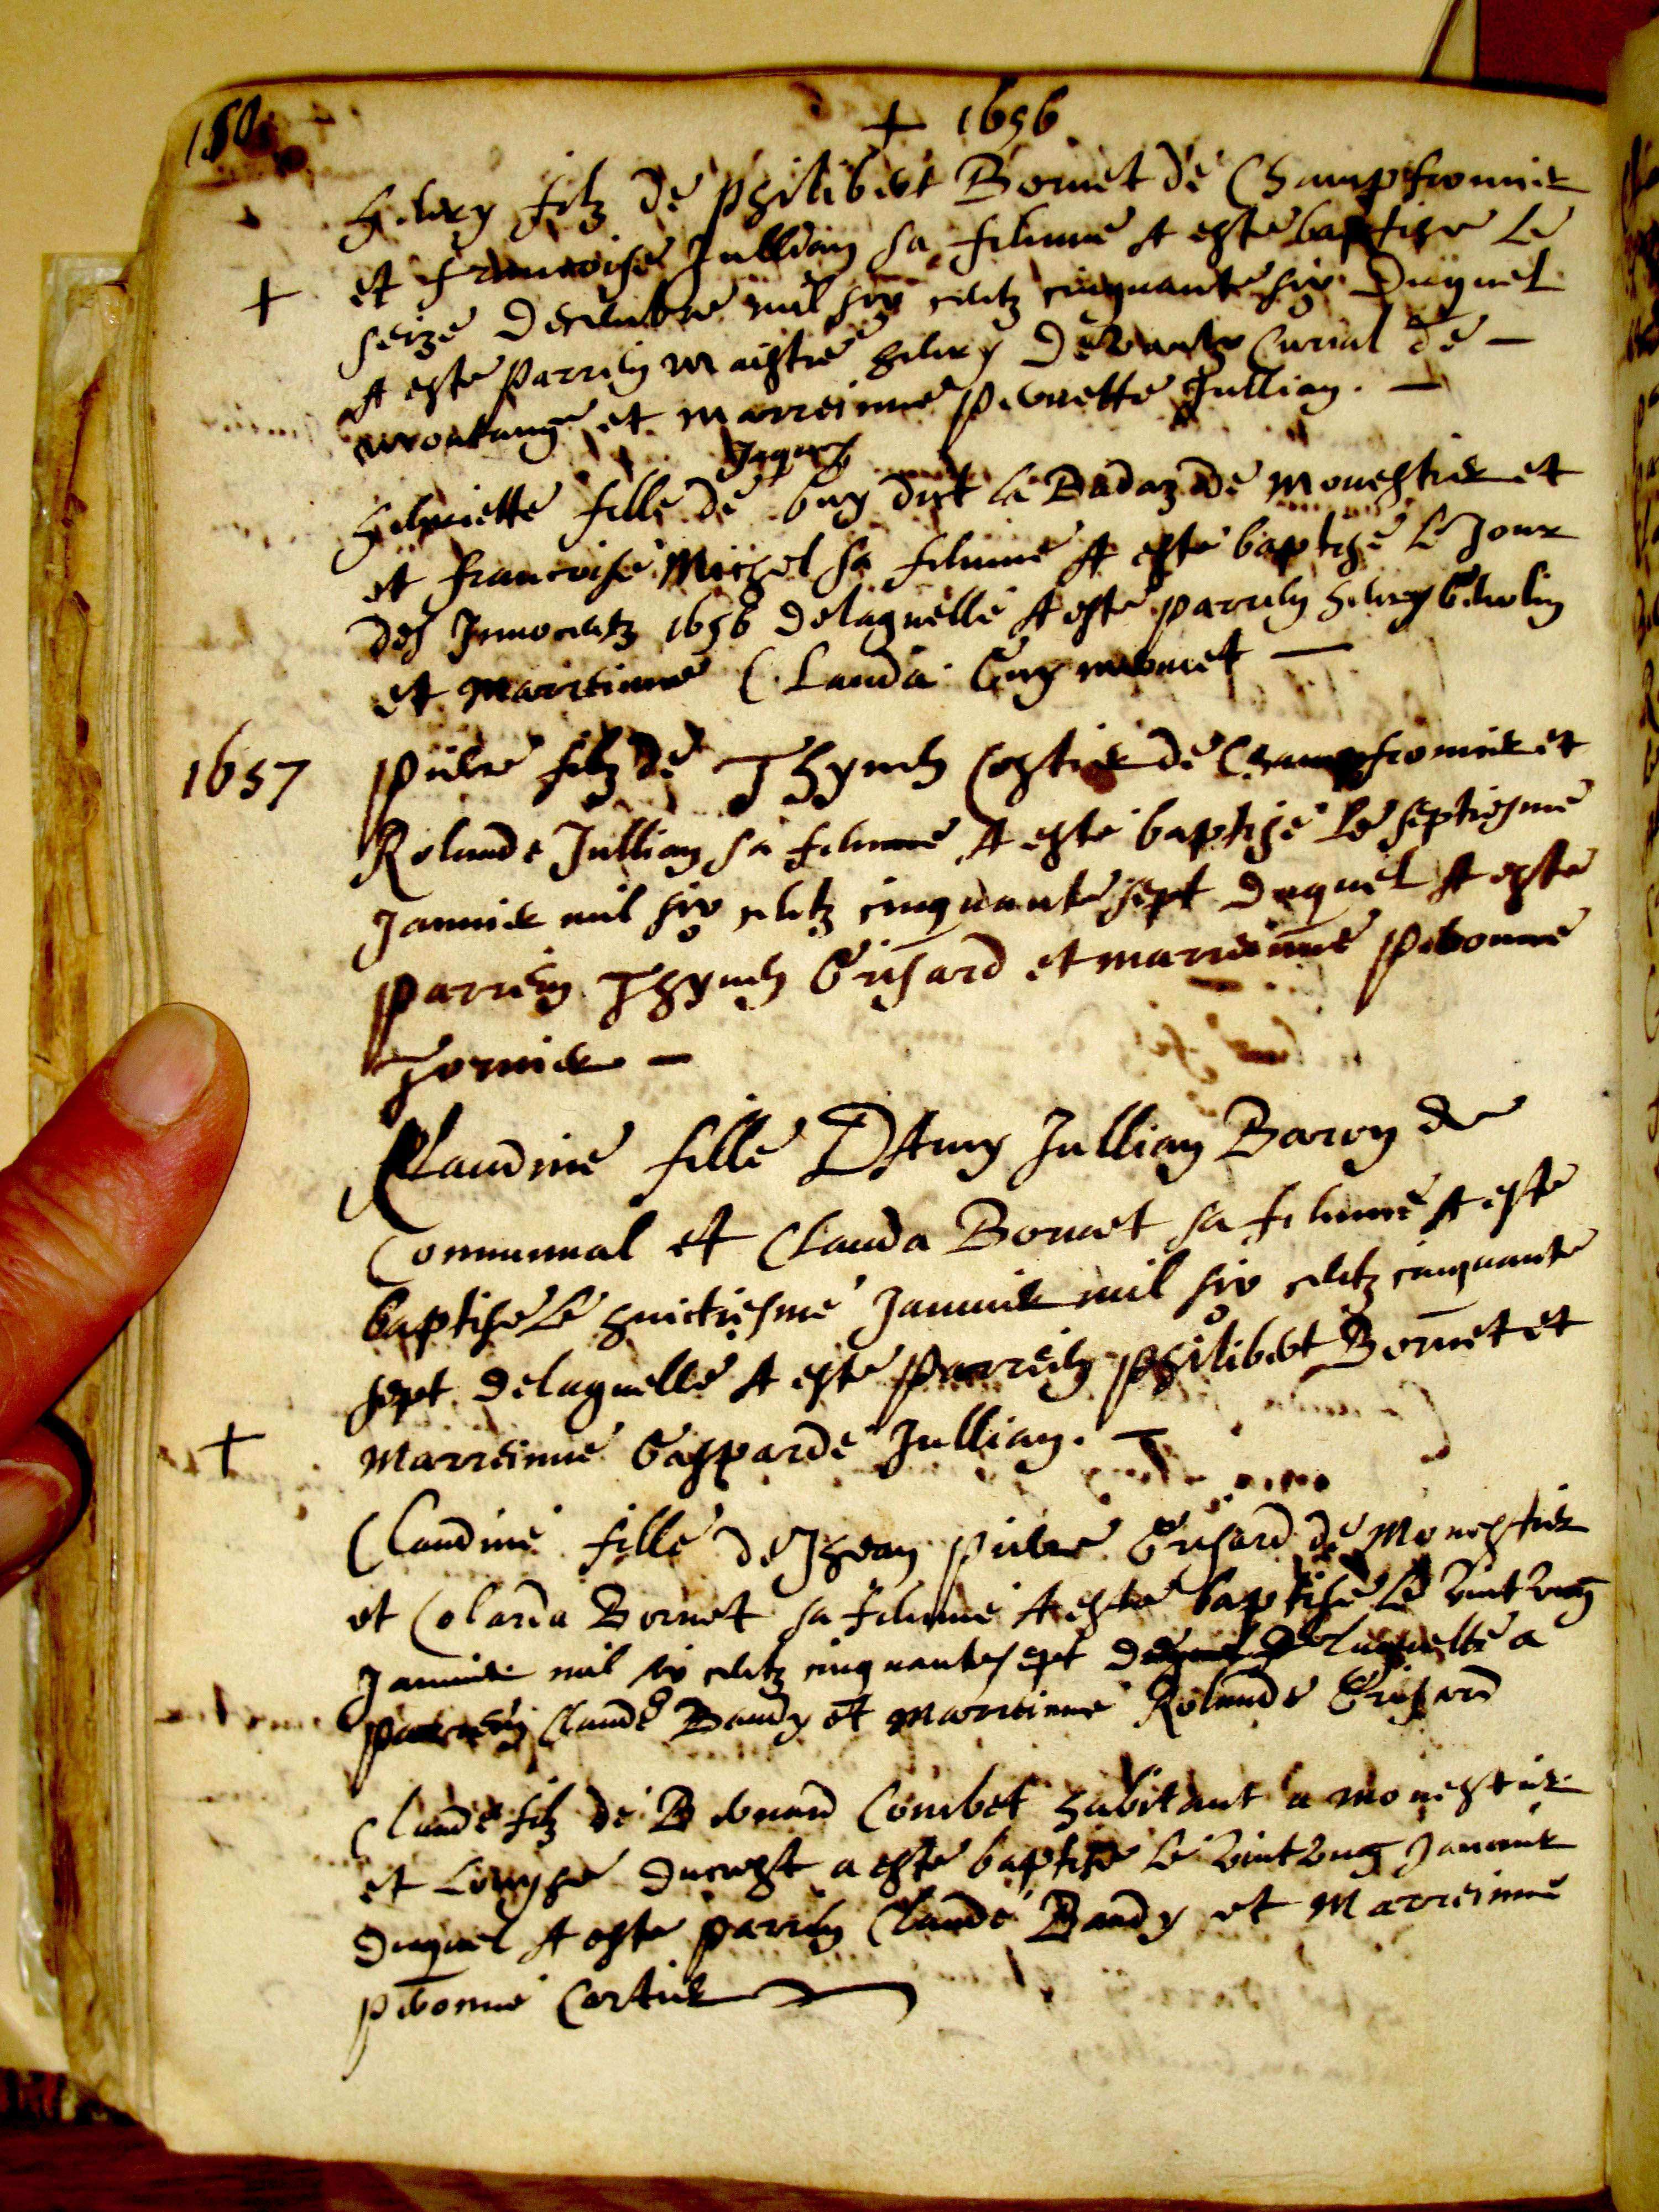 150
+ 1656
Henry filz de Philibert Bornet de Champfromier
et Francoise Jullian sa femme A este baptise le
+
seize Decembre mil six centz cinquante six Duquel
A este Parrein Maistre Henry Curial de —
Montange et Marreinne Pernette Jullian. —
Jaques
Henriette fille de Guy dict le Badaz de Monestier et
et francoise Michel sa femme A este baptise le Jour
des Innocentz 1656 delaquelle A este parrein Henry
et Marreinne Clauda Guy
1657
Pierre filz de Thyven Costier de Champfromier et
Rolande Jullian sa femme A este baptisé le septiesme
Janvier mil six centz cinquante sept duquel A este
parrein Thyven Grisard et marreinne Pervonne
Tornier —
Claudine fille D'Amy Jullian Baron de
Communal et Clauda Bornet sa femme A este
baptise le huictiesme Janvier mil six centz cinquante
sept delaquelle A este Parrein Philibert Bornet et
+
Marreinne Gasparde Jullian. —
Claudine fille de Jhean Pierre Grisard de Monestier
et Colarda Bornet sa femme A este baptise le vint ung
Janvier mil six centz cinquante sept laquelle a
parrein Claude Baudy et Marreinne Rolande Grisard
Claude filz de Bernard Combet habitant a Monestier
et Louyse Ducrest a este baptise le vint ung Janvier
Duquel A este parrein Claude Baudy et Marreinne
Pervonne Cortier